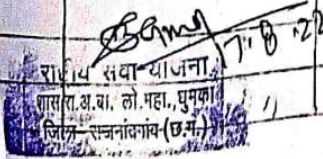 7.8.22
राष्ट्रीय सेवा योजना
शास.रा.अ.वा. लो.महा., घुमका
जिला-राजनांदगांव (छ.ग.)